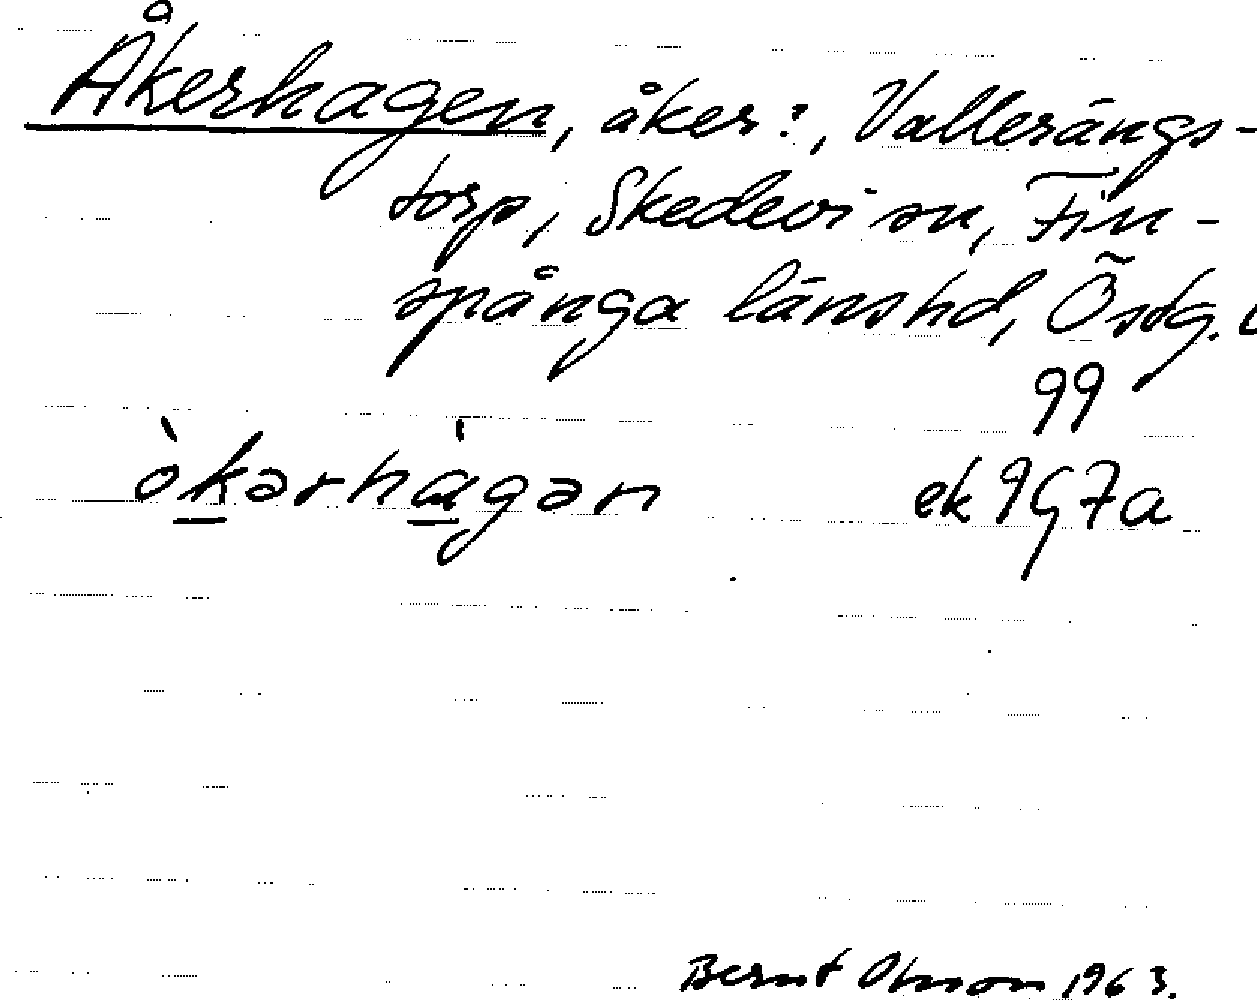 Åkerhagen, åker:, Vallerängs-
torp, Skedevi sn, Fin-
spånga länshd, Östg.
99
òkərhàgən ek 9G7a
Bernt Olsson 1963.